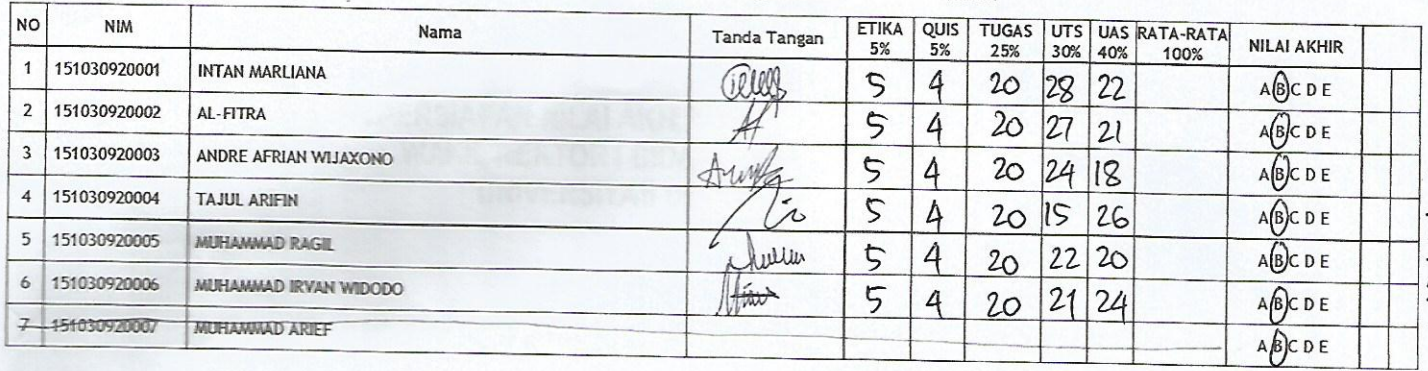 NO NIM Nama Tanda Tangan ETIKA 5% QUIS 5% TUGAS 25% UTS 30% UAS 40% RATA-RATA 100% NILAI AKHIR
1 151030920001 INTAN MARLIANA 5 4 20 28 22 A B C D E
2 151030920002 AL-FITRA 5 4 20 27 21 A B C D E
3 151030920003 ANDRE AFRIAN WIJAXONO 5 4 20 24 18 A B C D E
4 151030920004 TAJUL ARIFIN 5 4 20 15 26 A B C D E
5 151030920005 MUHAMMAD RAGIL 5 4 20 22 20 A B C D E
6 151030920006 MUHAMMAD IRVAN WIDODO 5 4 20 21 24 A B C D E
7 151030920007 MUHAMMAD ARIEF A B C D E